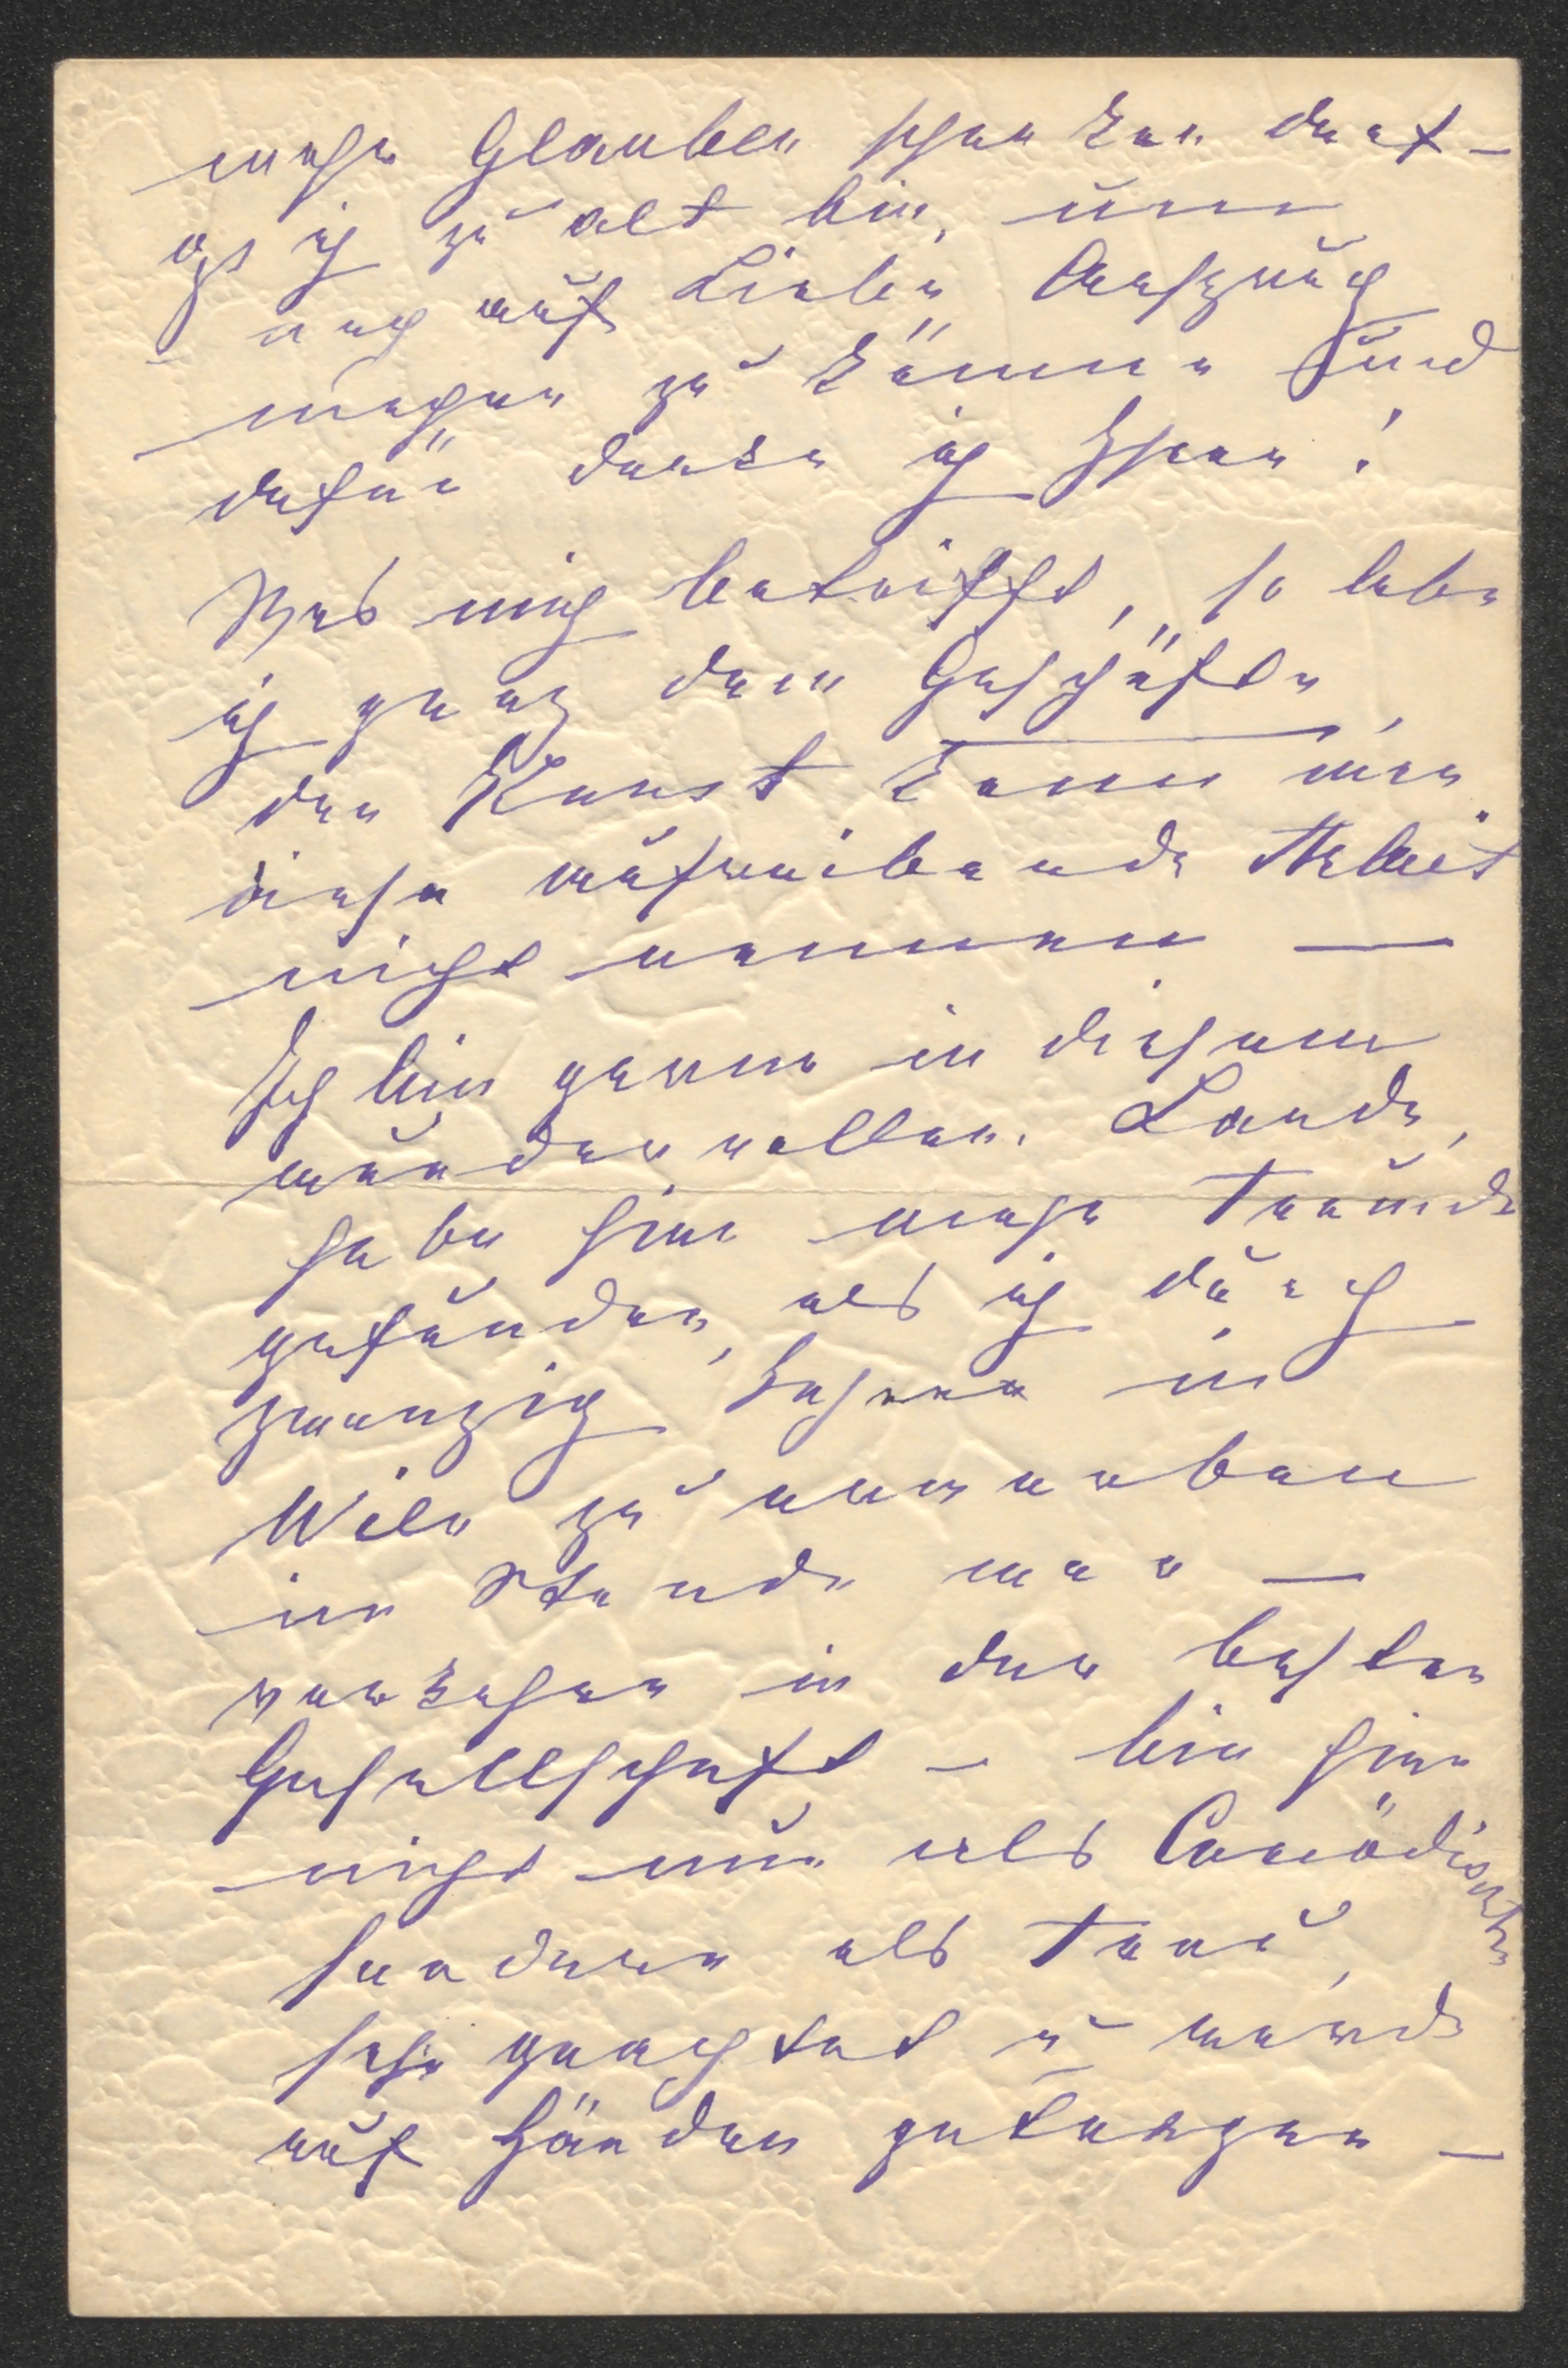 mehr Glauben schenken darf —
ich zu alt bin, um
noch auf Liebe Anspruch
machen zu können und
dafür danke ich Ihnen!
Was mich betrifft, so lebe
ich ganz dem Geschäfte,
den Kunst kann man
diese aufreibende Arbeit
nicht nennen —
Ich bin gerne in diesem
wundervollen Lande,
habe hier mehr Freunde
gefunden, als ich durch
zwanzig Jahren in
Wien zu erwerben
im Stande war —
verkehre in der besten
Gesellschaft — bin hier
nicht nur als Comödiantin
sondern als Frau,
sehr geachtet u werde
auf Händen getragen —